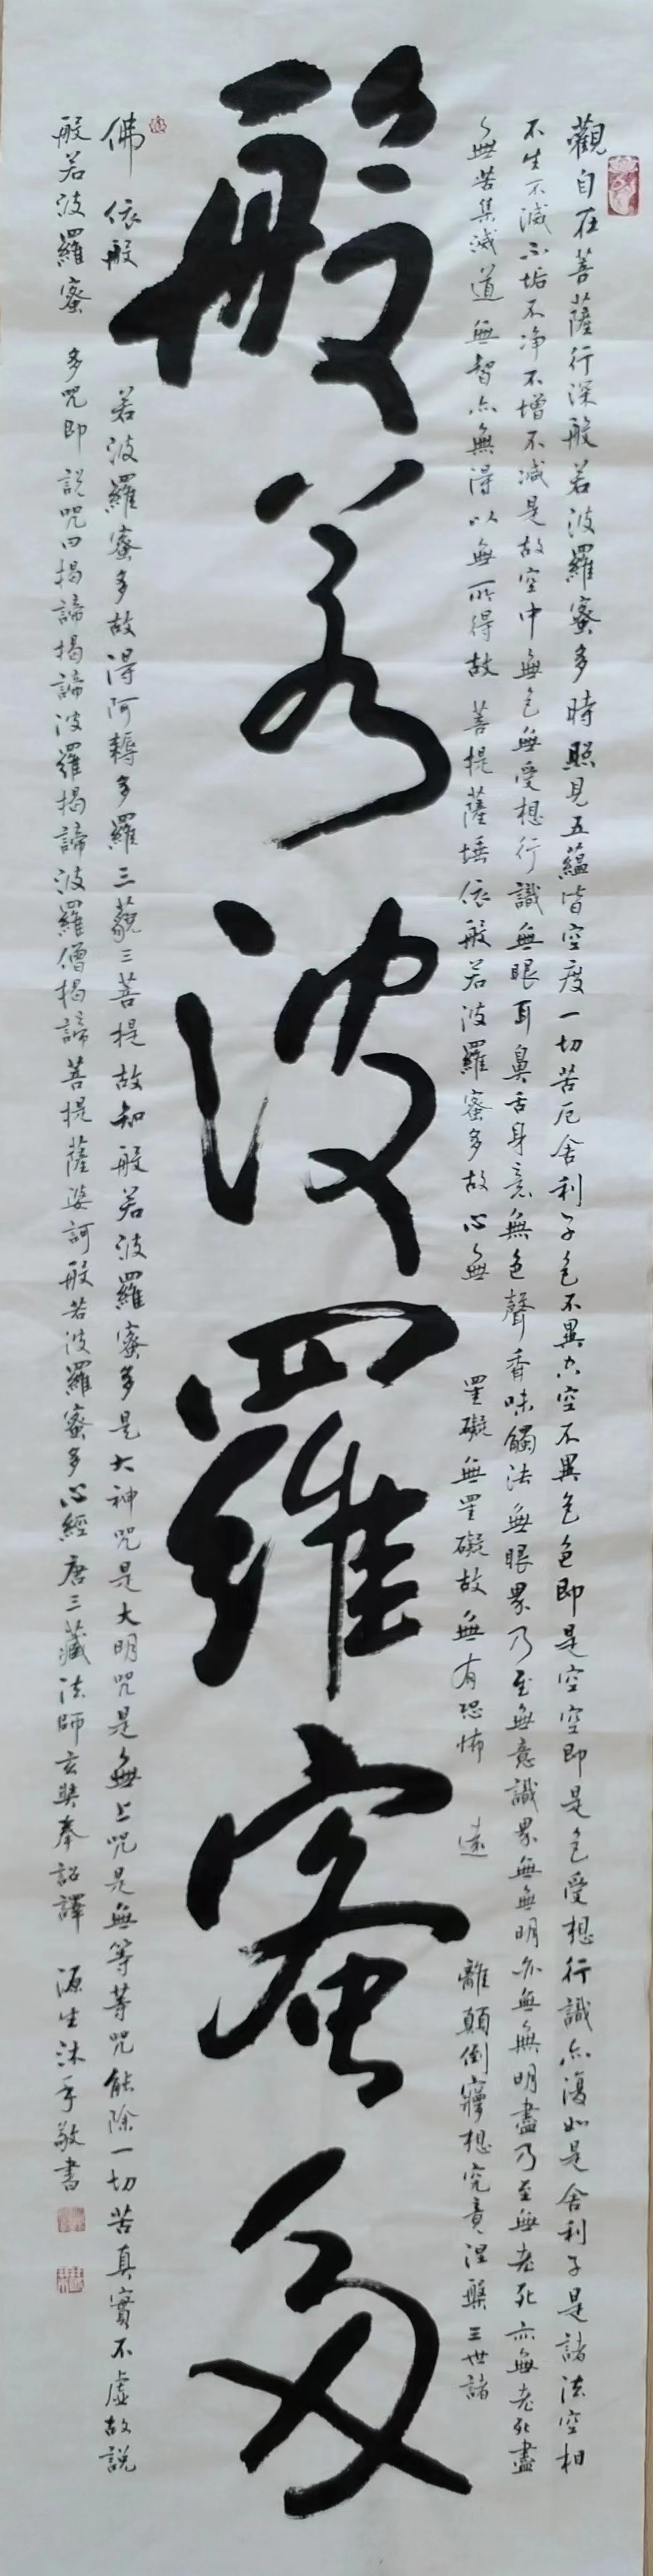 觀自在菩薩行深般若波羅蜜多時照見五蘊皆空度一切苦厄舍利子色不異空空不異色色即是空空即是色受想行識亦復如是舍利子是諸法空相
不生不滅不垢不净不增不减是故空中無色無受想行識無眼耳鼻舌身意無色聲香味觸法無眼界乃至無意識界無無明亦無無明盡乃至無老死亦無老死盡
無苦集滅道無智亦無得以無所得故菩提薩埵依般若波羅蜜多故心無罣礙無罣礙故無有恐怖遠離顛倒夢想究竟涅槃三世諸
般若波羅蜜多
佛依般若波羅蜜多故得阿耨多羅三藐三菩提故知般若波羅蜜多是大神咒是大明咒是無上咒是無等等咒能除一切苦真實不虛故說
般若波羅蜜多咒即說咒曰揭諦揭諦波羅揭諦波羅僧揭諦菩提薩婆訶般若波羅蜜多心經唐三藏法師玄奘奉詔譯源生沐手敬書